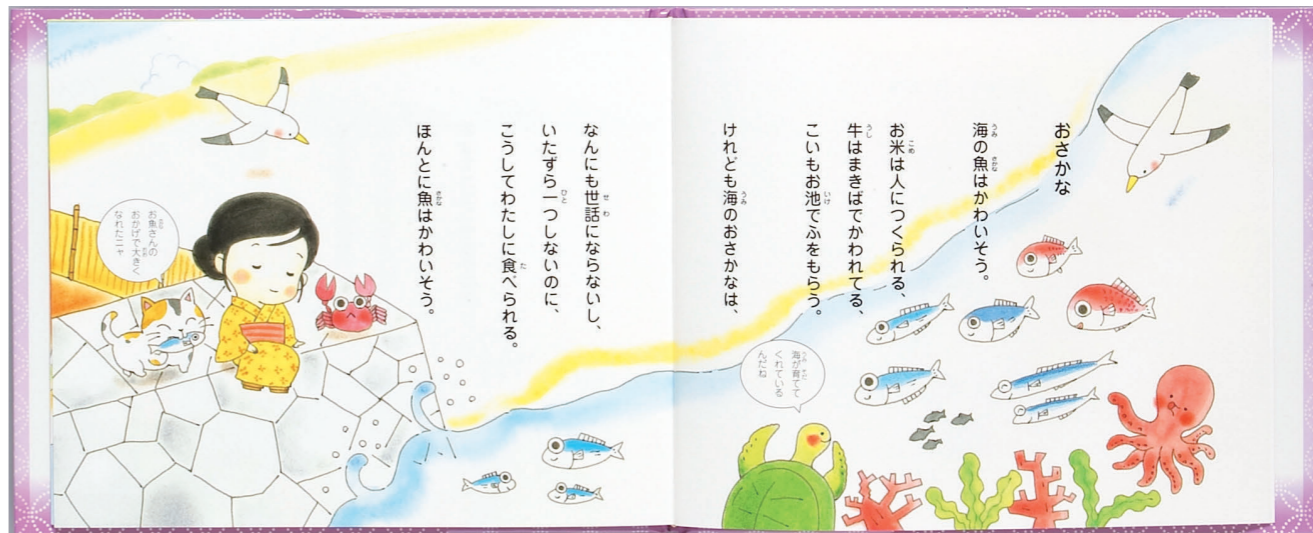 おさかな
海の魚はかわいそう。
お米は人につくられる、
牛はまきばでかわれてる、
こいもお池でふをもらう。
けれども海のおさかなは、
海が育てて
くれている
んだね
なんにも世話にならないし、
いたずら一つしないのに、
こうしてわたしに食べられる。
ほんとに魚はかわいそう。
お魚さんの
おかげで大きく
なれたニャ